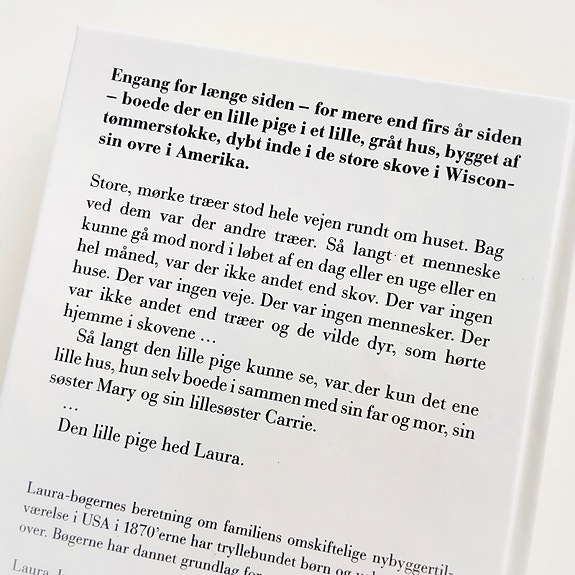 Engang for længe siden – for mere end firs år siden
– boede der en lille pige i et lille, gråt hus, bygget af
tømmerstokke, dybt inde i de store skove i Wiscon-
sin ovre i Amerika.
Store, mørke træer stod hele vejen rundt om huset. Bag
ved dem var der andre træer. Så langt et menneske
kunne gå mod nord i løbet af en dag eller en uge eller en
hel måned, var der ikke andet end skov. Der var ingen
huse. Der var ingen veje. Der var ingen mennesker. Der
var ikke andet end træer og de vilde dyr, som hørte
hjemme i skovene ...
Så langt den lille pige kunne se, var der kun det ene
lille hus, hun selv boede i sammen med sin far og mor, sin
søster Mary og sin lillesøster Carrie.
...
Den lille pige hed Laura.
Laura-bøgernes beretning om familiens omskiftelige nybyggertil-
værelse i USA i 1870'erne har tryllebundet børn og
over. Bøgerne har dannet grundlag for